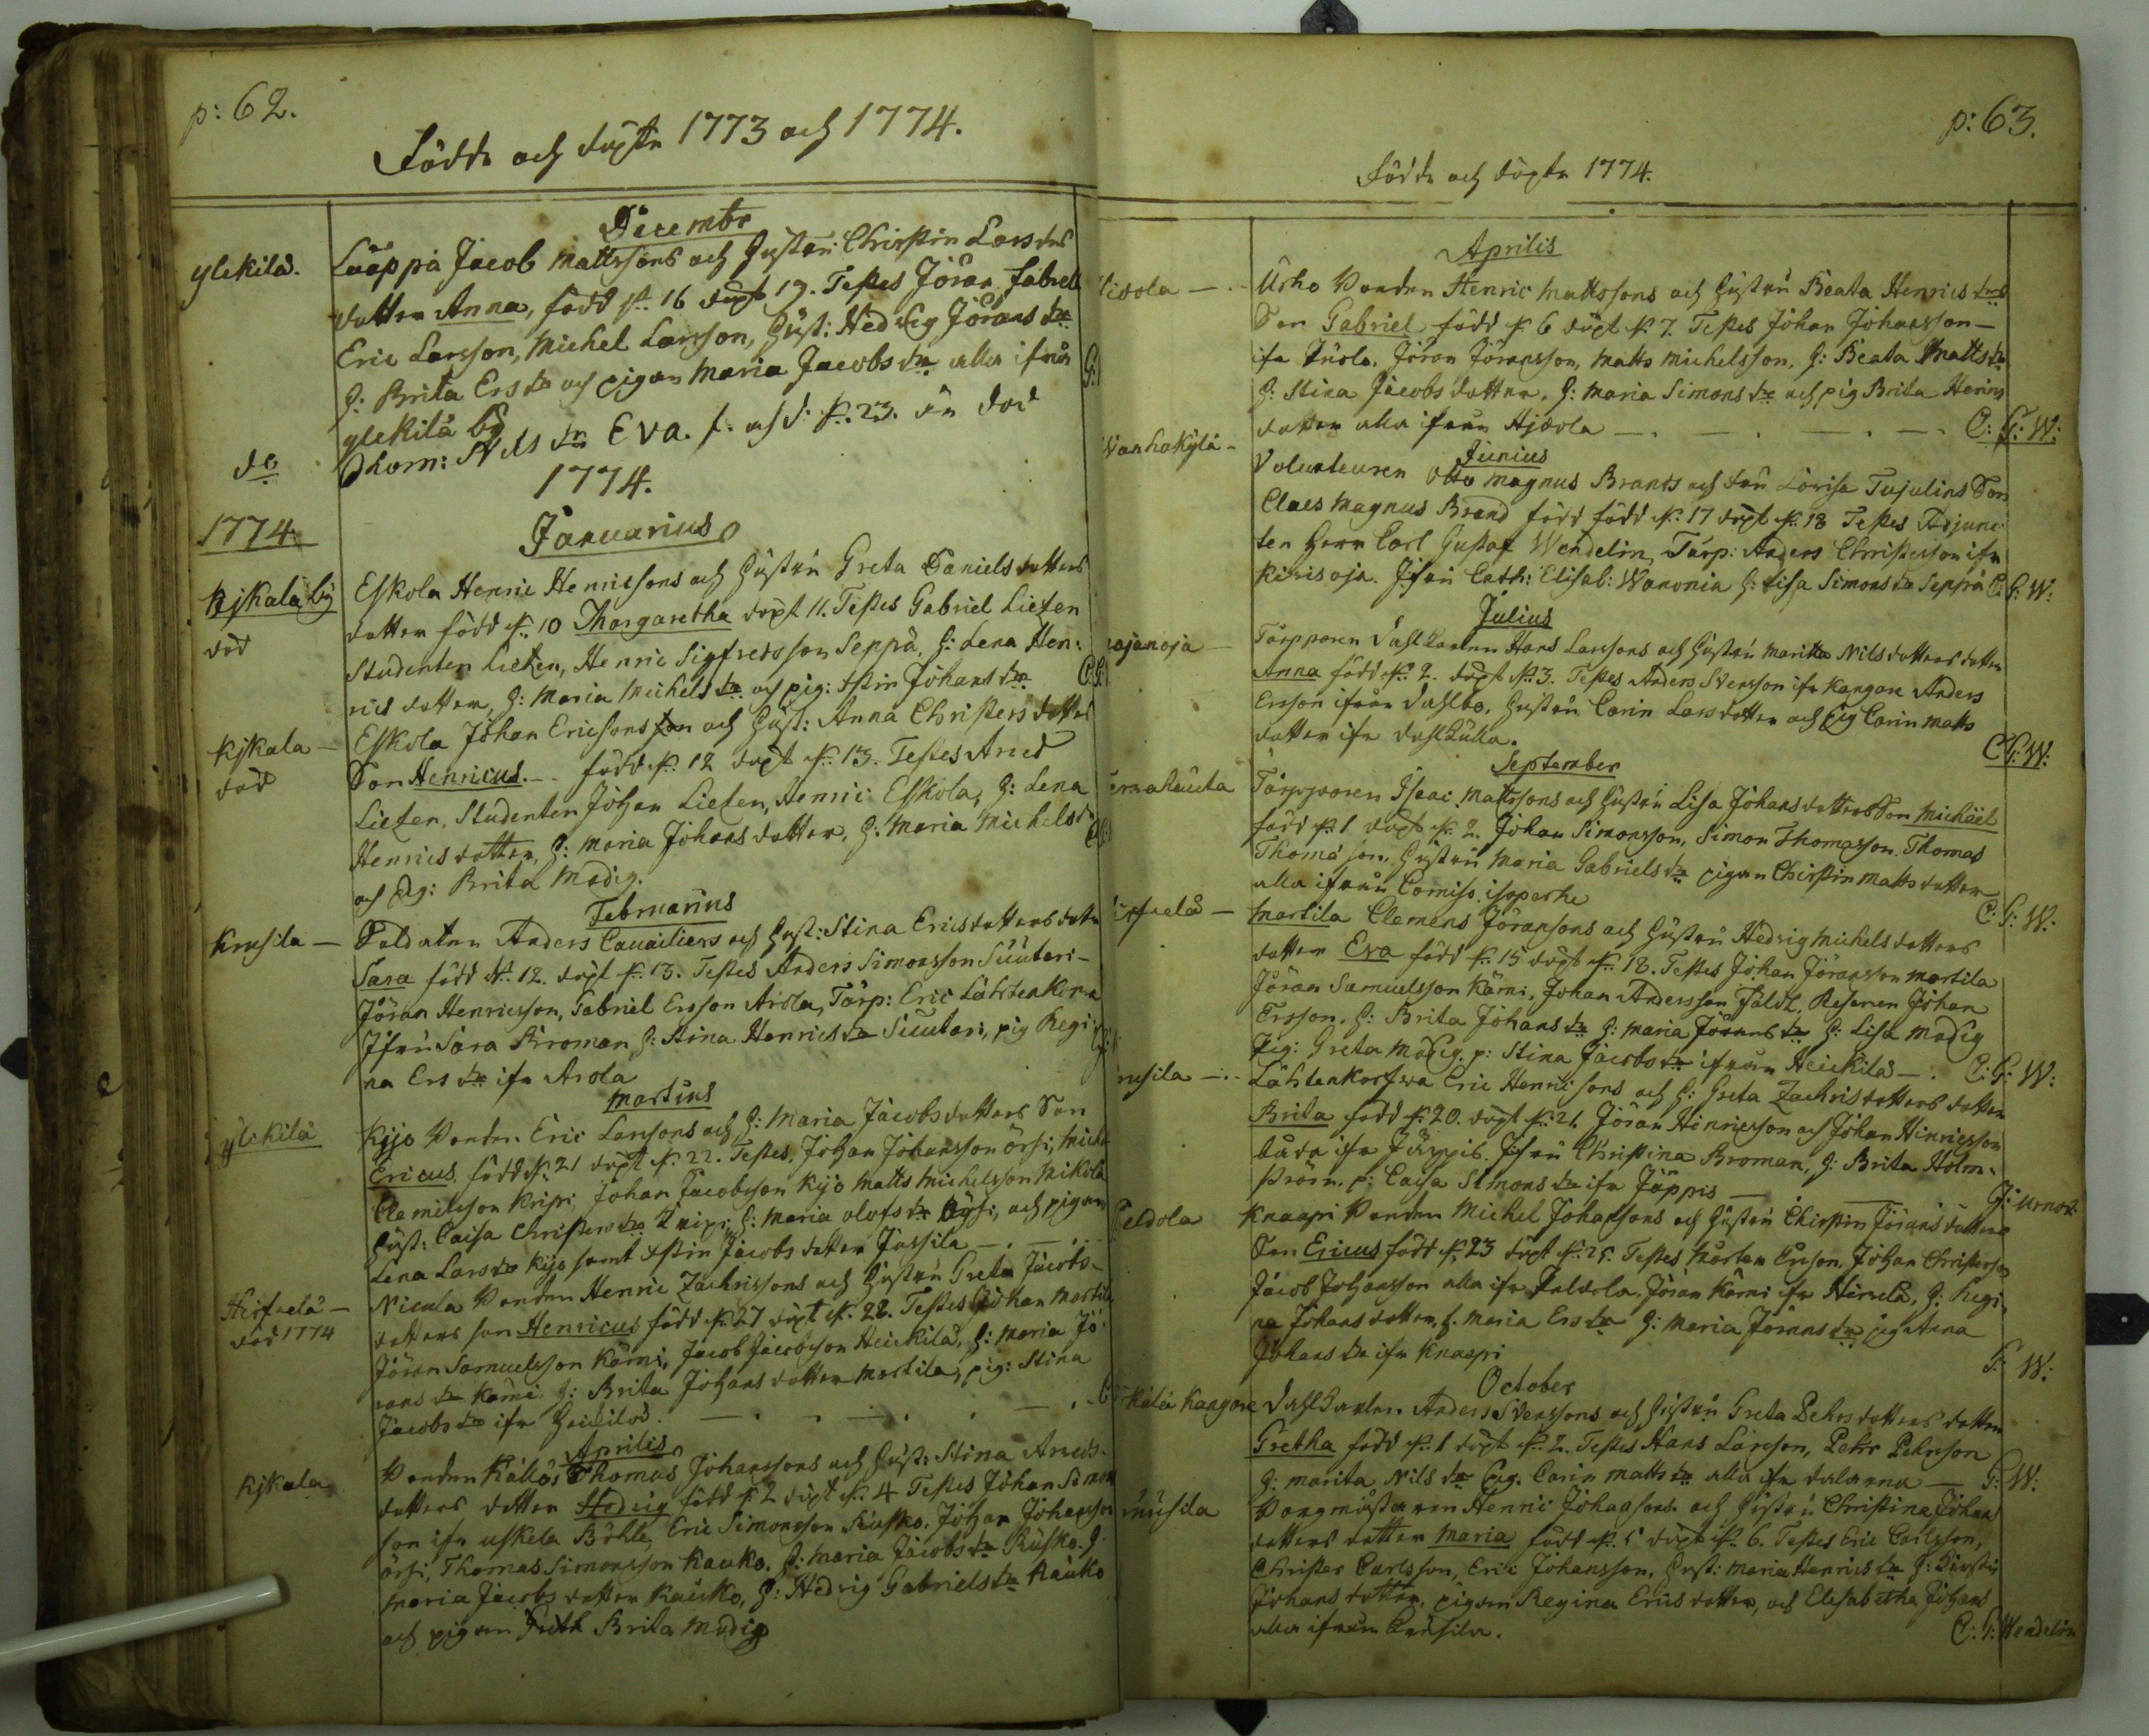 p: 62.
Födde och döpte 1773 och 1774.
December
ylekilä. Lääppä Jacob Mattssons och Hustrun Christin Larsdrs
dotter Anna, född d. 16 döpt 19. Testes Jöran Gabriel
Eric Larsson, Michel Larsson, Hust: Hedvig Jörans dr
H: Brita Ers dr och pigan Maria Jacobs dr alla ifrån
ylekilä by
do Thom: Nils dr Eva. f. och d. d. 23. är död
1774.
1774. Januarius
Kjkala by Eskola Henric Henricsons och Hustrun Greta Daniels dotters
död dotter född d. 10 Margaretha döpt 11. Testes Gabriel Lietzen
Studenten Lietzen, Henric Sigfredsson Seppä, H: Lena Hen-
rics dotter, H: Maria Michels dr och pig: Stin Johans dr
Kjkala — Eskola Johan Ericsons son och Hust: Anna Christers dotters
död Son Henricus. — född d. 12 döpt d. 13. Testes Aned
Lietzen. Studenten Johan Lietzen, Henric Eskola, H: Lena
Henrics dotter, H: Maria Johans dotter, H: Maria Michels dr
och Pig: Brita Modig.
Februarius
Krusila — Soldaten Anders Cauailiers och Hust: Stina Erics dotters dotter
Sara född d. 12. döpt d. 13. Testes Anders Simonsson Suutari —
Jöran Henricsson, Gabriel Ersson Arola, Torp: Eric Lähtenkorva
Jfru Sara Broman H: Stina Henrics dr Suutari, pig Regi-
na Ers dr ifr Arola
Martius
ylikilä Kijo Bonden Eric Larssons och H: Maria Jacobs dotters Son
Ericus född d. 21 döpt d. 22. Testes, Johan Johansson örsi, Michel
Clemitsson Kripi Johan Jacobsson Kijo Matts Michelsson Nikola
Hust: Caisa Christers dr Kripi, H: Maria olofs dr och pigan
Lena Lars dr Kijo samt Stin Jacobs dotter Jussila —
Heifvelä — Nicula Bonden Henric Zachrissons och Hustrun Greta Jacobs-
död 1774 dotters son Henricus född d. 27 döpt d. 28. Testes Johan Mortila
Jöran Samuelsson Kärni, Jacob Jacobsson Heickilä, H: Maria Jö-
rans dr Kärni, H: Brita Johans dotter Mortila, pig: Stina
Jacobs dr ifr Heickilä.
Aprilis
Kjkala Bonden Källös Thomas Johanssons och Hust: Stina Areds-
dotters dotter Hedvig född d. 2 döpt d. 4 Testes Johan Simon
son ifr uskela Böhle, Eric Simonsson Rusko. Johan Johansson
örsi, Thomas Simonsson Kauko. H: Maria Jacobs dr Rusko. H:
Maria Jacobs dotter Kauko, H: Hedvig Gabriels dr Kauko
och pigan Brita Modig
p: 63.
Födde och döpte 1774.
Aprilis
Urho Bonden Henric Mattssons och Hustrun Beata Henrics drs
Son Gabriel född d. 6 döpt d. 7. Testes Johan Johansson —
ifr Jöran Jöransson, Matts Michelsson, H: Beata Matts dr
H: Stina Jacobs dotter, H: Maria Simons dr och pig Brita Henrics
dotter alla ifrån Hjdola — C: G: W:
Junius
Wanhakylä — Volunteuren Otto Magnus Brands och Fru Lovisa Tujulins Son
Claes Magnus Brand född född d. 17 döpt d. 18 Testes Adjunc-
ten Herr Carl Gustaf Wendelin, Torp: Anders Christersson ifr
Kivisoja. Jfru Cath: Elisab: Waronia H: Lisa Simons dr Seppä C: G: W:
Julius
Torpparen Dahlkarlen Hans Larssons och Hustrun Maritta Nils dotters dotter
Anna född d. 2. döpt d. 3. Testes Anders Svensson ifr Kangare Anders
Ersson ifrån Dahlbo, Hustrun Carin Lars dotter och Pig Carin Matts
dotter ifr C: G: W:
September
Torpparen Isaac Mattssons och Hustrun Lisa Johans dotters Son Michael
född d. 1 döpt d. 2. Johan Simonsson, Simon Thomasson. Thomas
Thomasson, Hustrun Maria Gabriels dr pigan Christin Matts dotter
alla ifrån Comiss. isoperhe C: G: W:
Martila Clemens Jöransons och Hustrun Hedvig Michels dotters
dotter Eva född d. 15 döpt d. 18. Testes Johan Jöransson Martila
Jöran Samuelsson Kärni, Johan Andersson Johan
Ersson. H: Brita Johans dr H: Maria Jörans dr H: Lisa Modig
Pig: Greta Modig. p: Stina Jacobs dr ifrån Heickilä — C: G: W:
Lähtenkorfva Eric Henricsons och H: Greta Zachris dotters dotter
Brita född d. 20. döpt d. 21. Jöran Hinricsson och Johan Hinricsson
båda ifr Järppis. Jfru Christina Broman, H: Brita Holm-
ström. p: Caisa Simons dr ifr Jäppis —
Knaapi Bonden Michel Johansons och Hustrun Christin Jörans dotters
Son Ericus född d. 23 döpt d. 25. Testes Morten Ericson, Johan Christersson
Jacob Johansson alla ifr Peldola, Jöran Kärni ifr Hirvelä, H: Regi-
na Johans dotter, H. Maria Ers dr H: Maria Jörans dr pig Anna
Johans dr ifr Knaapi G: W:
October
Kangare Dahlkarlen Anders Svenssons och Hustrun Greta Pehrs dotters dotter
Gretha född d. 1 döpt d. 2. Testes Hans Larsson, Pehr Pehrsson
H: Marita Nils dr Pig. Carin Matts dr alla ifr dalarna — G: W:
Henric Johansons och Hustrun Christina Johans
dotters dotter Maria född d. 5 döpt d. 6. Testes Eric Carlsson,
Christer Carlsson, Eric Johansson, Hust: Maria Henrics dr H: Kirstin
Johans dotter, pigan Regina Erics dotter, och Elisabetha Johans
alla ifrån Krusila. C: G: Wendelin